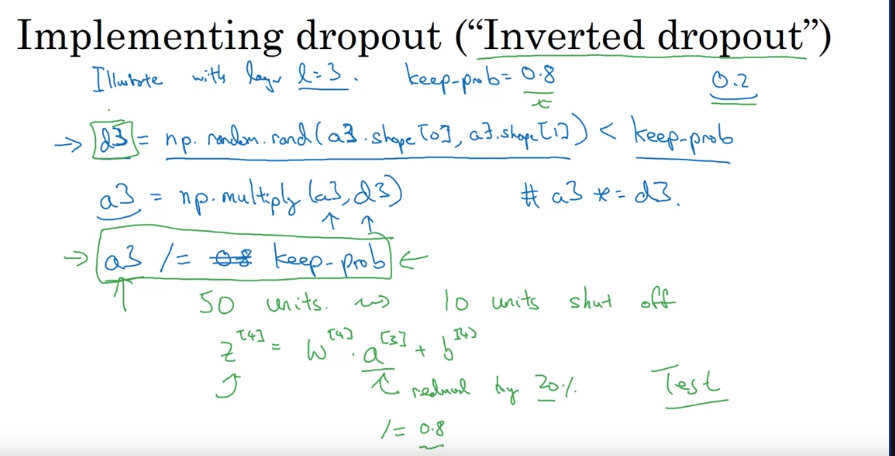 Implementing dropout (“Inverted dropout”)
Illustrate with layer l=3. keep-prob = 0.8 0.2
→ d3 = np.random.rand(a3.shape[0], a3.shape[1]) < keep-prob
a3 = np.multiply(a3, d3) # a3 *= d3.
→ a3 /= 0.8 keep-prob ←
50 units. ⇝ 10 units shut off
z^[4] = W^[4] · a^[3] + b^[4]
↑ reduced by 20%. Test
/= 0.8